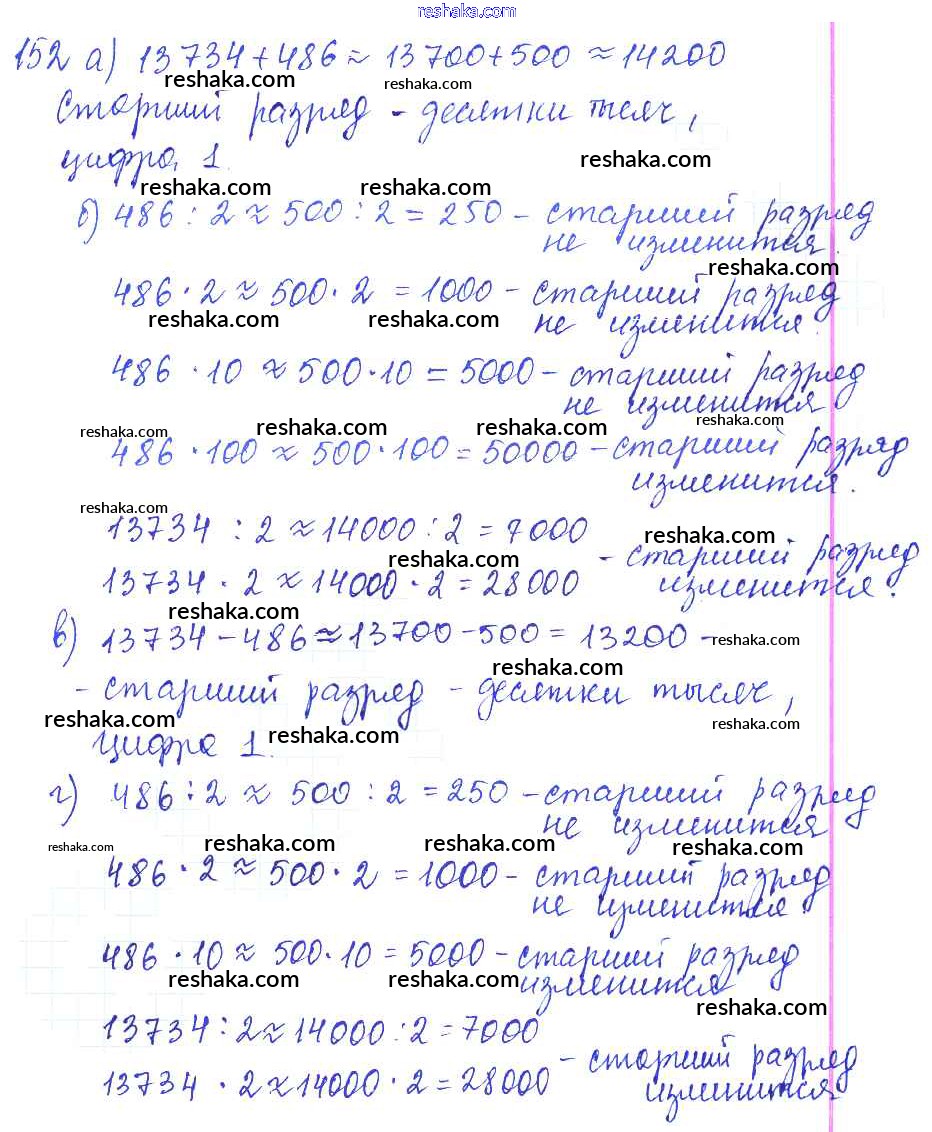 reshaka.com
152 а) 13734 + 486 ≈ 13700 + 500 ≈ 14200
reshaka.com reshaka.com
Старший разряд - десятки тысяч,
цифра 1.
reshaka.com
reshaka.com reshaka.com
б) 486 : 2 ≈ 500 : 2 = 250 - старший разряд
не изменится.
reshaka.com
486 · 2 ≈ 500 · 2 = 1000 - старший разряд
не изменится.
reshaka.com reshaka.com
486 · 10 ≈ 500 · 10 = 5000 - старший разряд
не изменится
reshaka.com reshaka.com reshaka.com reshaka.com
486 · 100 ≈ 500 · 100 = 50000 - старший разряд
изменится.
reshaka.com
13734 : 2 ≈ 14000 : 2 = 7000
reshaka.com
reshaka.com
13734 · 2 ≈ 14000 · 2 = 28000
- старший разряд
изменится.
reshaka.com
в) 13734 - 486 ≈ 13700 - 500 = 13200 -
reshaka.com
reshaka.com
- старший разряд - десятки тысяч,
reshaka.com reshaka.com reshaka.com
цифра 1.
г) 486 : 2 ≈ 500 : 2 = 250 - старший разряд
не изменится
reshaka.com reshaka.com reshaka.com reshaka.com
486 · 2 ≈ 500 · 2 = 1000 - старший разряд
не изменится.
486 · 10 ≈ 500 · 10 = 5000 - старший разряд
изменится
reshaka.com reshaka.com
reshaka.com
13734 : 2 ≈ 14000 : 2 = 7000
reshaka.com reshaka.com
13734 · 2 ≈ 14000 · 2 = 28000
- старший разряд
изменится